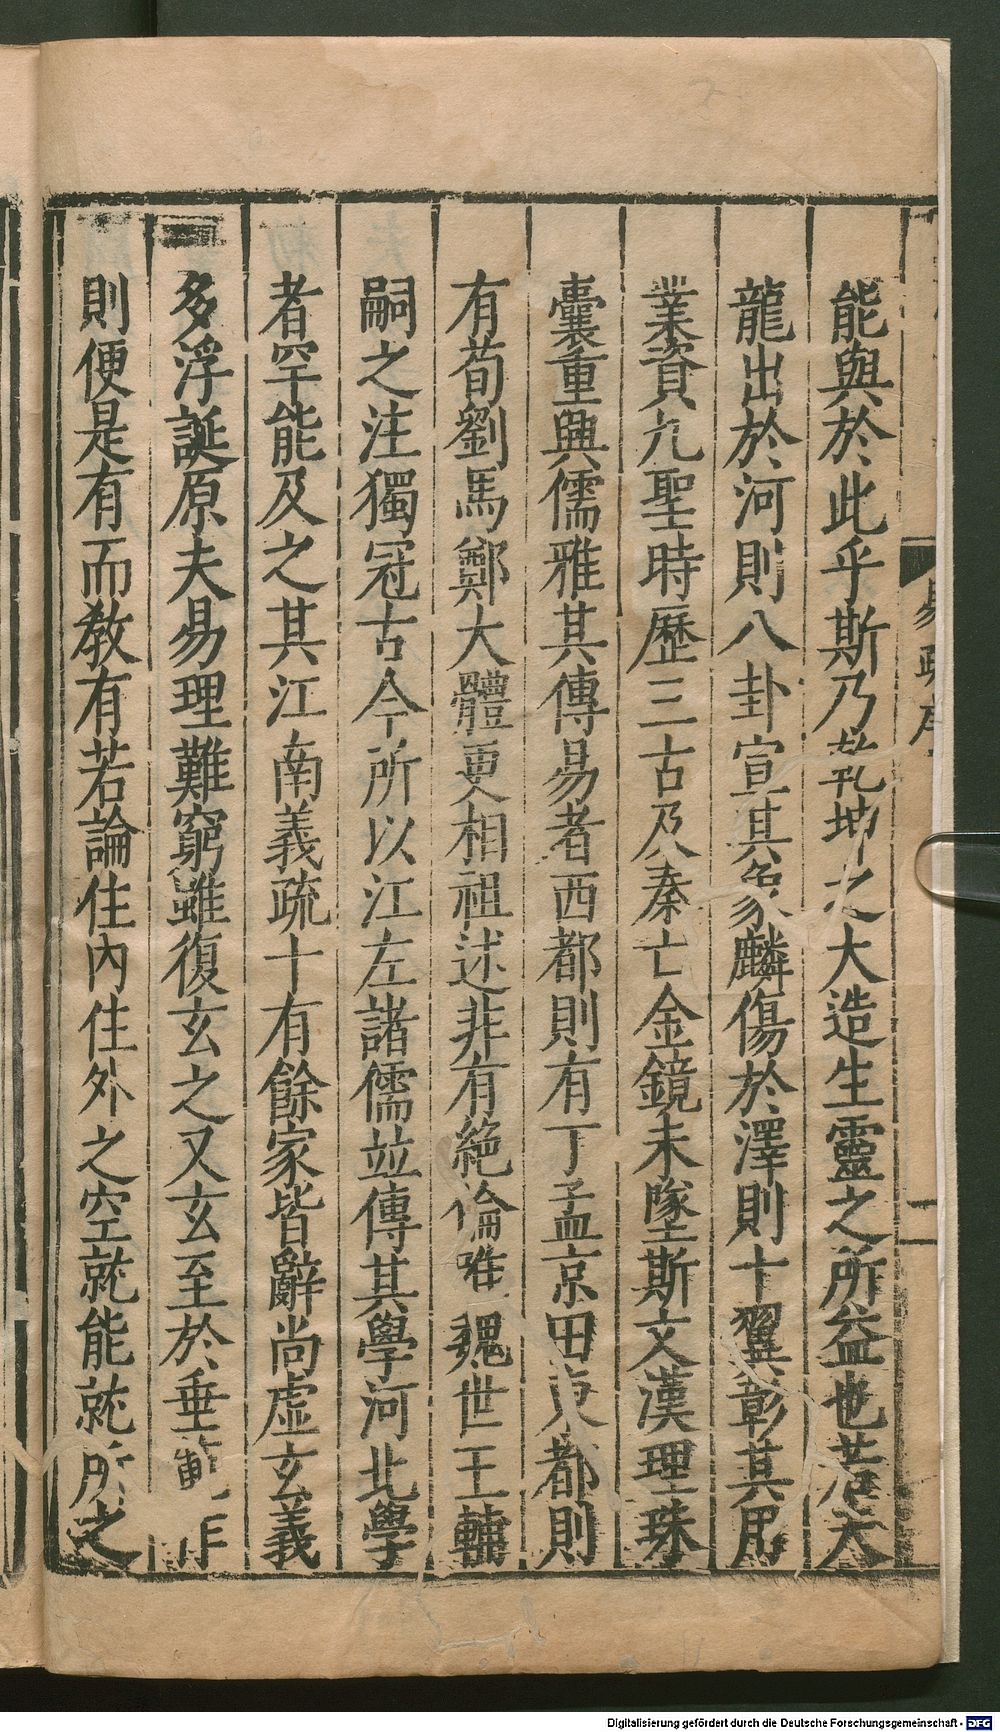 能與於此乎斯乃乾坤之大造生靈之所益也若夫
龍出於河則八卦宣其象麟傷於澤則十翼彰其用
業資九聖時歷三古及秦亡金鏡未墜斯文漢理珠
囊重興儒雅其傳易者西都則有丁孟京田東都則
有荀劉馬鄭大體更相祖述非有絕倫唯魏世王輔
嗣之注獨冠古今所以江左諸儒並傳其學河北學
者罕能及之其江南義疏十有餘家皆辭尚虛玄義
多浮誕原夫易理難窮雖復玄之又玄至於垂範作
則便是有而教有若論住內住外之空就能就所之
易疏序
一
Digitalisierung gefördert durch die Deutsche Forschungsgemeinschaft - DFG